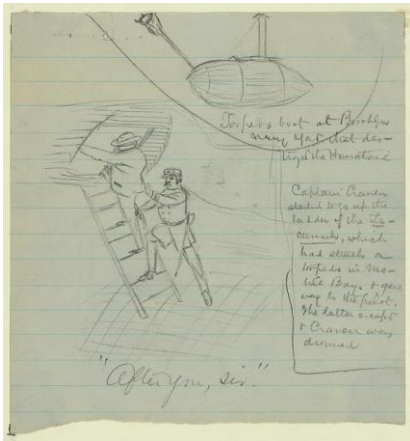 Torpedo boat at Brooklyn
navy yard that des-
troyed the Housatonic
Captain Craven
started to go up the
ladder of the Te-
cumseh, which
had struck a
torpedo in Mo-
bile Bay, & gave
way to the pilot,
the latter escaped
& Craven was
drowned
"After you, sir."